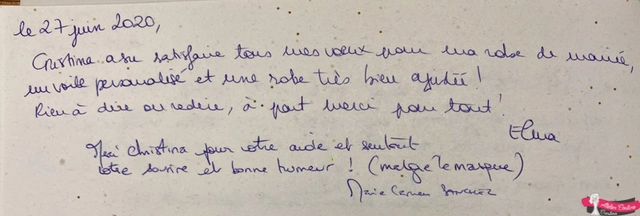 le 27 juin 2020,
Cristina a su satisfaire tous mes vœux pour ma robe de mariée,
un voile personalisé et une robe très bien ajustée !
Rien à dire ou redire, à part merci pour tout !
Elma
Merci Christina pour votre aide et surtout
votre sourire et bonne humeur ! (malgré le masque)
Marie Carmen SANCHEZ